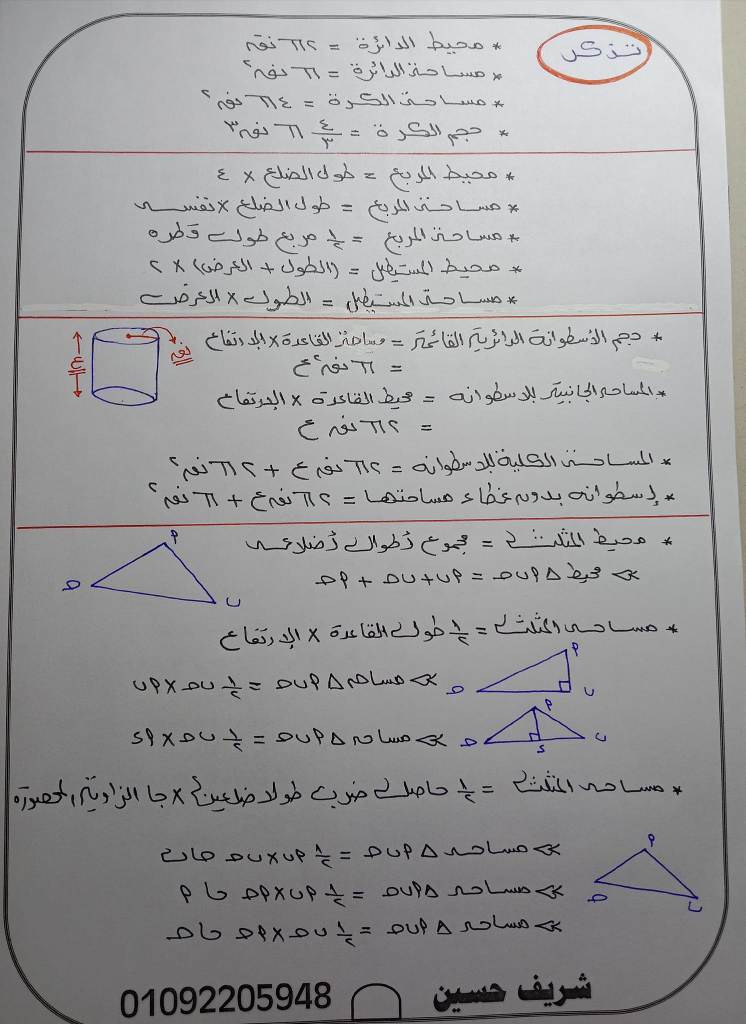 تذكر
* محيط الدائرة = ٢ π نق
* مساحة الدائرة = π نق²
* مساحة الكرة = ٤ π نق²
* حجم الكرة = ٤/٣ π نق³
* محيط المربع = طول الضلع × ٤
* مساحة المربع = طول الضلع × نفسه
* مساحة المربع = ١/٢ مربع طول قطره
* محيط المستطيل = (الطول + العرض) × ٢
* مساحة المستطيل = الطول × العرض
* حجم الأسطوانة الدائرية القائمة = مساحة القاعدة × الارتفاع
= π نق² ع
نق
ع
* المساحة الجانبية للاسطوانه = محيط القاعدة × الارتفاع
= ٢ π نق ع
* المساحة الكلية للاسطوانه = ٢ π نق ع + ٢ π نق²
* إسطوانه بدون غطاء مساحتها = ٢ π نق ع + π نق²
* محيط المثلث = مجموع أطوال أضلاعه
محيط △ م ب حـ = م ب + ب حـ + م حـ
م
حـ
ب
* مساحه المثلث = ١/٢ طول القاعدة × الارتفاع
مساحه △ م ب حـ = ١/٢ ب حـ × م ب
م
حـ
ب
مساحه △ م ب حـ = ١/٢ ب حـ × م ء
م
حـ
ء
ب
* مساحه المثلث = ١/٢ حاصل ضرب طولا ضلعين × جا الزاوية المحصورة
مساحه △ م ب حـ = ١/٢ م ب × ب حـ حا ب
مساحه △ م ب حـ = ١/٢ م ب × م حـ حا م
مساحه △ م ب حـ = ١/٢ ب حـ × م حـ حا حـ
م
حـ
ب
شريف حسين 01092205948